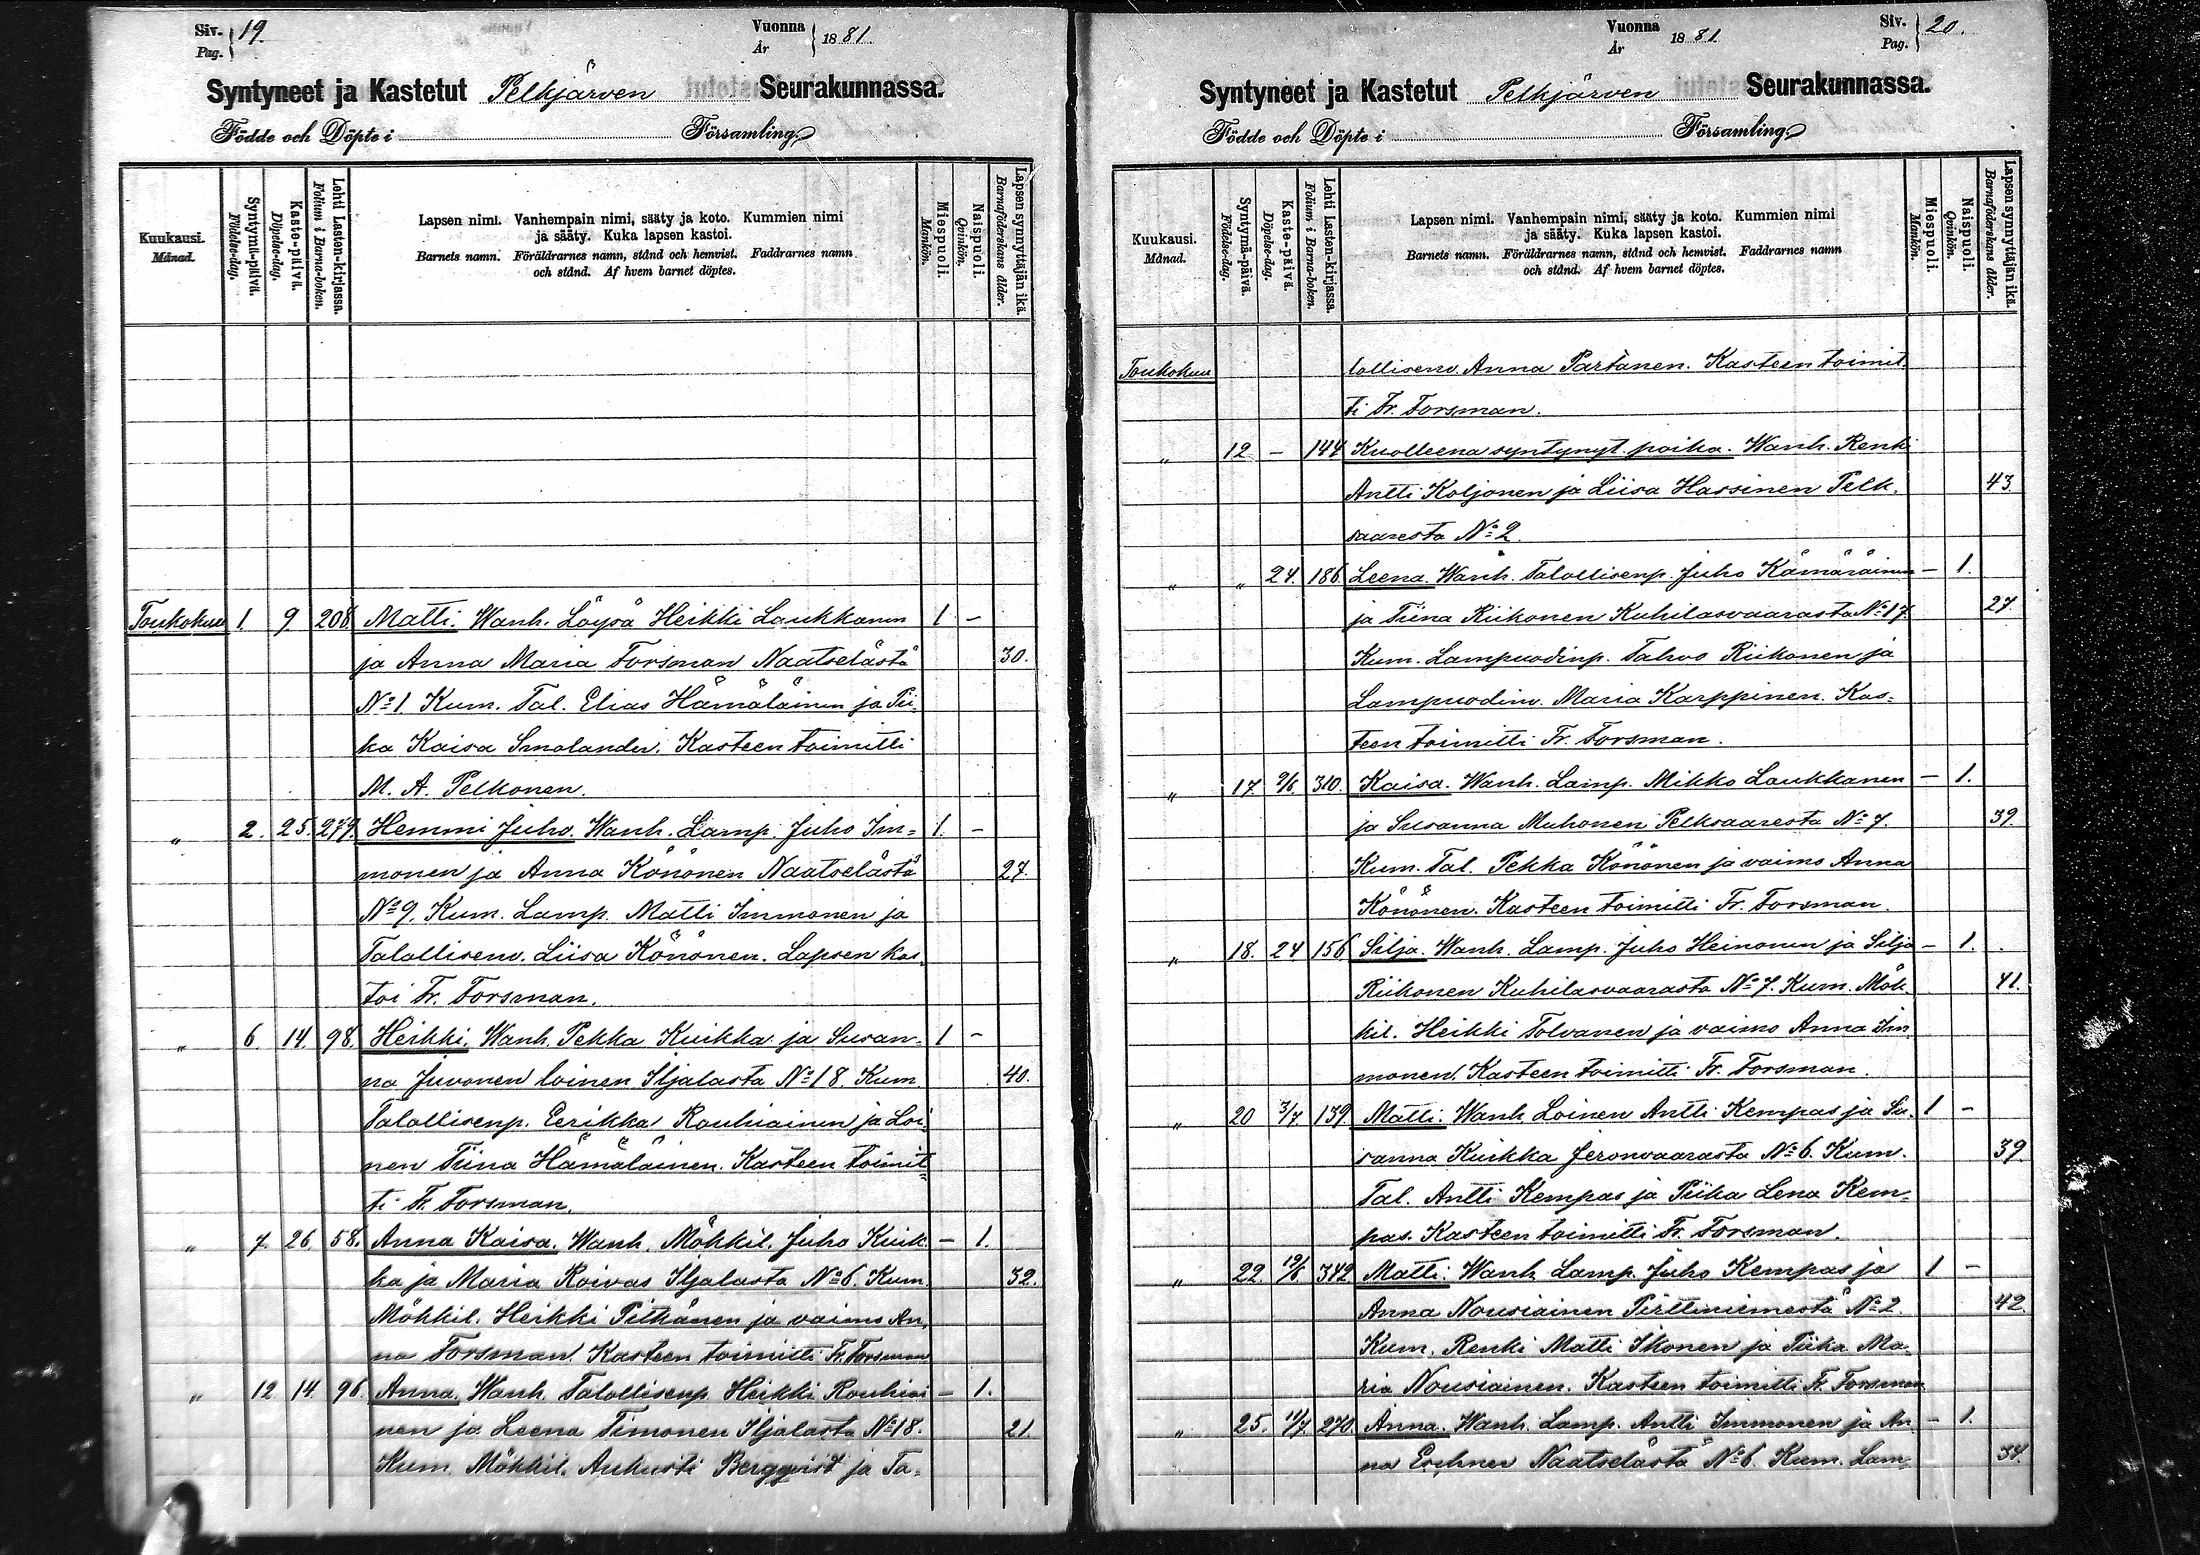 Siv. 19.
Pag.
Vuonna 1881.
År
Syntyneet ja Kastetut Pelkjärven Seurakunnassa.
Födde och Döpte i Församling.
Kuukausi.
Månad.
Syntymä-päivä.
Födelse-dag.
Kaste-päivä.
Döpelse-dag.
Lehti Lasten-kirjassa.
Folium i Barna-boken.
Lapsen nimi. Vanhempain nimi, sääty ja koto. Kummien nimi
ja sääty. Kuka lapsen kastoi.
Barnets namn. Föräldrarnes namn, stånd och hemvist. Faddrarnes namn
och stånd. Af hvem barnet döptes.
Miespuoli.
Mankön.
Naispuoli.
Qvinkön.
Lapsen synnyttäjän ikä.
Barnaföderskans ålder.
Toukokuu 1. 9. 208. Matti. Wanh. Löysä Heikki Laukkanen 1 -
ja Anna Maria Forsman Naatselästä 30.
No 1 Kum. Tal. Elias Hämäläinen ja Pii-
ka Kaisa Smolander. Kasteen toimitti
M. A. Pelkonen.
" 2. 25. 279. Hemmi Juho. Wanh. Lamp. Juho Im= 1. -
monen ja Anna Könönen Naatselästä 27.
No 9. Kum. Lamp. Matti Immonen ja
Talollisenv. Liisa Könönen. Lapsen kas-
toi Fr. Forsman.
" 6. 14. 98. Heikki. Wanh. Pekka Kuikka ja Susan- 1 -
na Juvonen loinen Iljalasta No 18. Kum 40.
Talollisenp. Eerikka Rouhiainen ja Loi-
nen Tiina Hämäläinen. Kasteen toimit
ti Fr. Forsman.
" 7. 26. 58. Anna Kaisa. Wanh. Mökkil. Juho Kuik- - 1.
ka ja Maria Koivas Iljalasta No 6. Kum. 32.
Mökkil. Heikki Pitkänen ja vaimo An-
na Forsman. Kasteen toimitti Fr. Forsman
" 12 14. 96. Anna. Wanh. Talollisenp Heikki Rouhiai - 1.
nen ja Leena Timonen Iljalasta No 18. 21.
Kum. Mökkil. Aukusti Bergqvist ja Ta-
Vuonna 1881.
År
Siv. 20.
Pag.
Syntyneet ja Kastetut Pelkjärven Seurakunnassa.
Födde och Döpte i Församling.
Kuukausi.
Månad.
Syntymä-päivä.
Födelse-dag.
Kaste-päivä.
Döpelse-dag.
Lehti Lasten-kirjassa.
Folium i Barna-boken.
Lapsen nimi. Vanhempain nimi, sääty ja koto. Kummien nimi
ja sääty. Kuka lapsen kastoi.
Barnets namn. Föräldrarnes namn, stånd och hemvist. Faddrarnes namn
och stånd. Af hvem barnet döptes.
Miespuoli.
Mankön.
Naispuoli.
Qvinkön.
Lapsen synnyttäjän ikä.
Barnaföderskans ålder.
Toukokuu lollisenv. Anna Partanen. Kasteen toimit
ti Fr. Forsman.
" 12 - 144 Kuolleena syntynyt poika. Wanh. Renki
Antti Koljonen ja Liisa Hassinen Pelk. 43.
saaresta No 2.
" " 24. 186. Leena. Wanh. Talollisenp. Juho Kämäräinen - 1.
ja Tiina Riikonen Kuhilasvaarasta No 17. 27.
Kum. Lampuodinp. Tahvo Riikonen ja
Lampuodinv. Maria Karppinen. Kas-
teen toimitti Fr. Forsman.
" 17. 9/6. 310. Kaisa. Wanh. Lamp. Mikko Laukkanen - 1.
ja Susanna Muhonen Pelksaaresta No 7. 39.
Kum. Tal. Pekka Könönen ja vaimo Anna
Könönen. Kasteen toimitti Fr. Forsman.
" 18. 24 156 Silja. Wanh. Lamp. Juho Heinonen ja Silja - 1.
Riikonen Kuhilasvaarasta No 7. Kum. Mök. 41.
kil. Heikki Tolvanen ja vaimo Anna Im
monen. Kasteen toimitti Fr. Forsman.
" 20 3/7. 139. Matti. Wanh Loinen Antti Kempas ja Su. 1 -
sanna Kuikka Jeronvaarasta No 6. Kum. 39.
Tal. Antti Kempas ja Piika Lena Kem-
pas. Kasteen toimitti Fr. Forsman.
" 22. 19/6 342 Matti. Wanh Lamp. Juho Kempas ja 1 -
Anna Nousiainen Pirttiniemestä No 2. 42.
Kum. Renki Matti Ikonen ja Piika Ma-
ria Nousiainen. Kasteen toimitti Fr. Forsman
" 25. 11/7. 270. Anna. Wanh. Lamp. Antti Immonen ja An- - 1.
na Naatselästä No 6. Kum. Lam- 34.